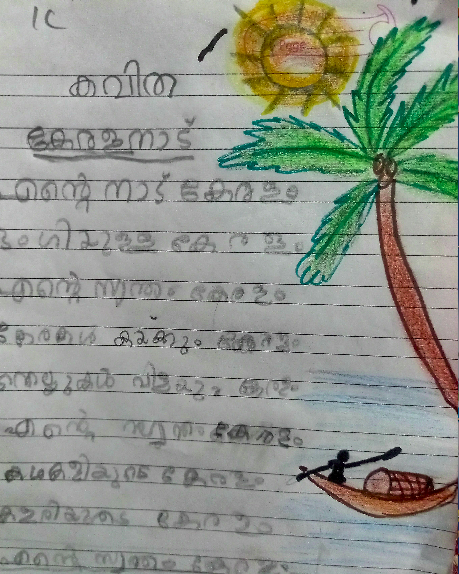 1C
കവിത
കേരളനാട്
എന്റെ നാട് കേരളം
ഭംഗിയുള്ള കേരളം
എന്റെ സ്വന്തം കേരളം
കേരകൾ കായ്ക്കും കേരളം
നെല്ലുകൾ വിളയും കേരളം
എന്റെ സ്വന്തം കേരളം
കഥകളിയുടെ കേരളം
കളരിയുടെ കേരളം
എന്റെ സ്വന്തം കേരളം